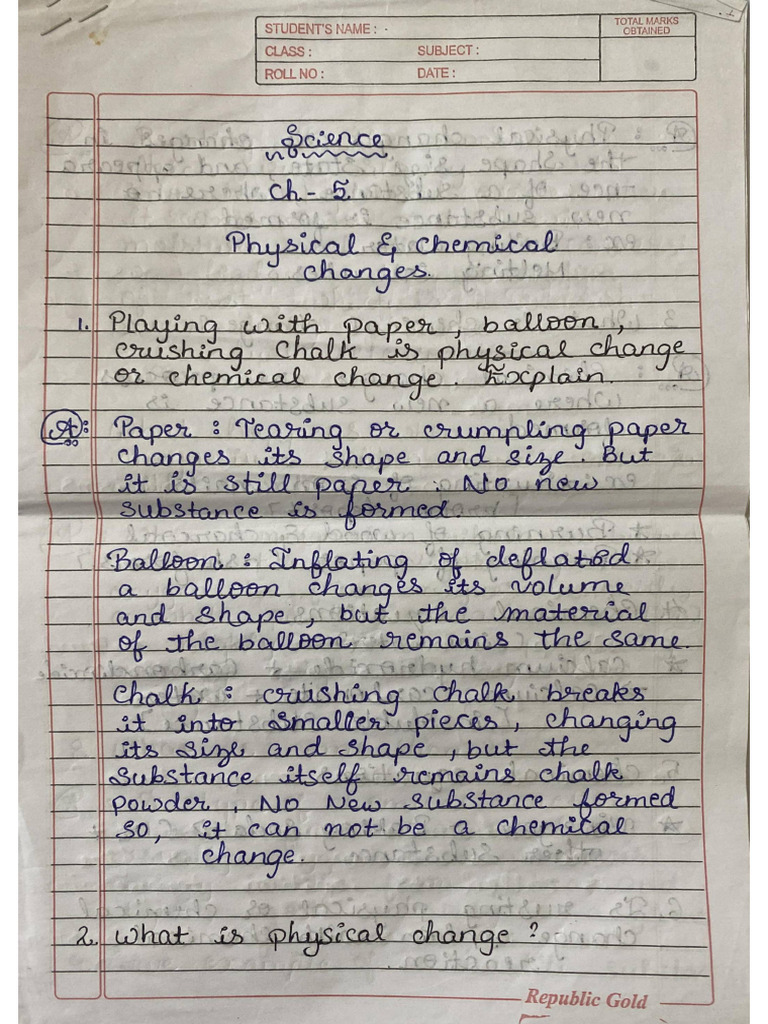 STUDENT'S NAME :
TOTAL MARKS
OBTAINED
CLASS : SUBJECT :
ROLL NO : DATE :
Science
Ch - 5.
Physical & Chemical
changes.
1. Playing with paper, balloon,
crushing Chalk is physical change
or chemical change. Explain.
A: Paper : Tearing or crumpling paper
changes its shape and size. But
it is still paper. No new
substance is formed.
Balloon : Inflating of deflated
a balloon changes its volume
and shape, but the material
of the balloon remains the same.
Chalk : crushing chalk breaks
it into smaller pieces, changing
its size and shape, but the
substance itself remains chalk
powder, No New substance formed
so, it can not be a chemical
change.
2. What is physical change ?
Republic Gold